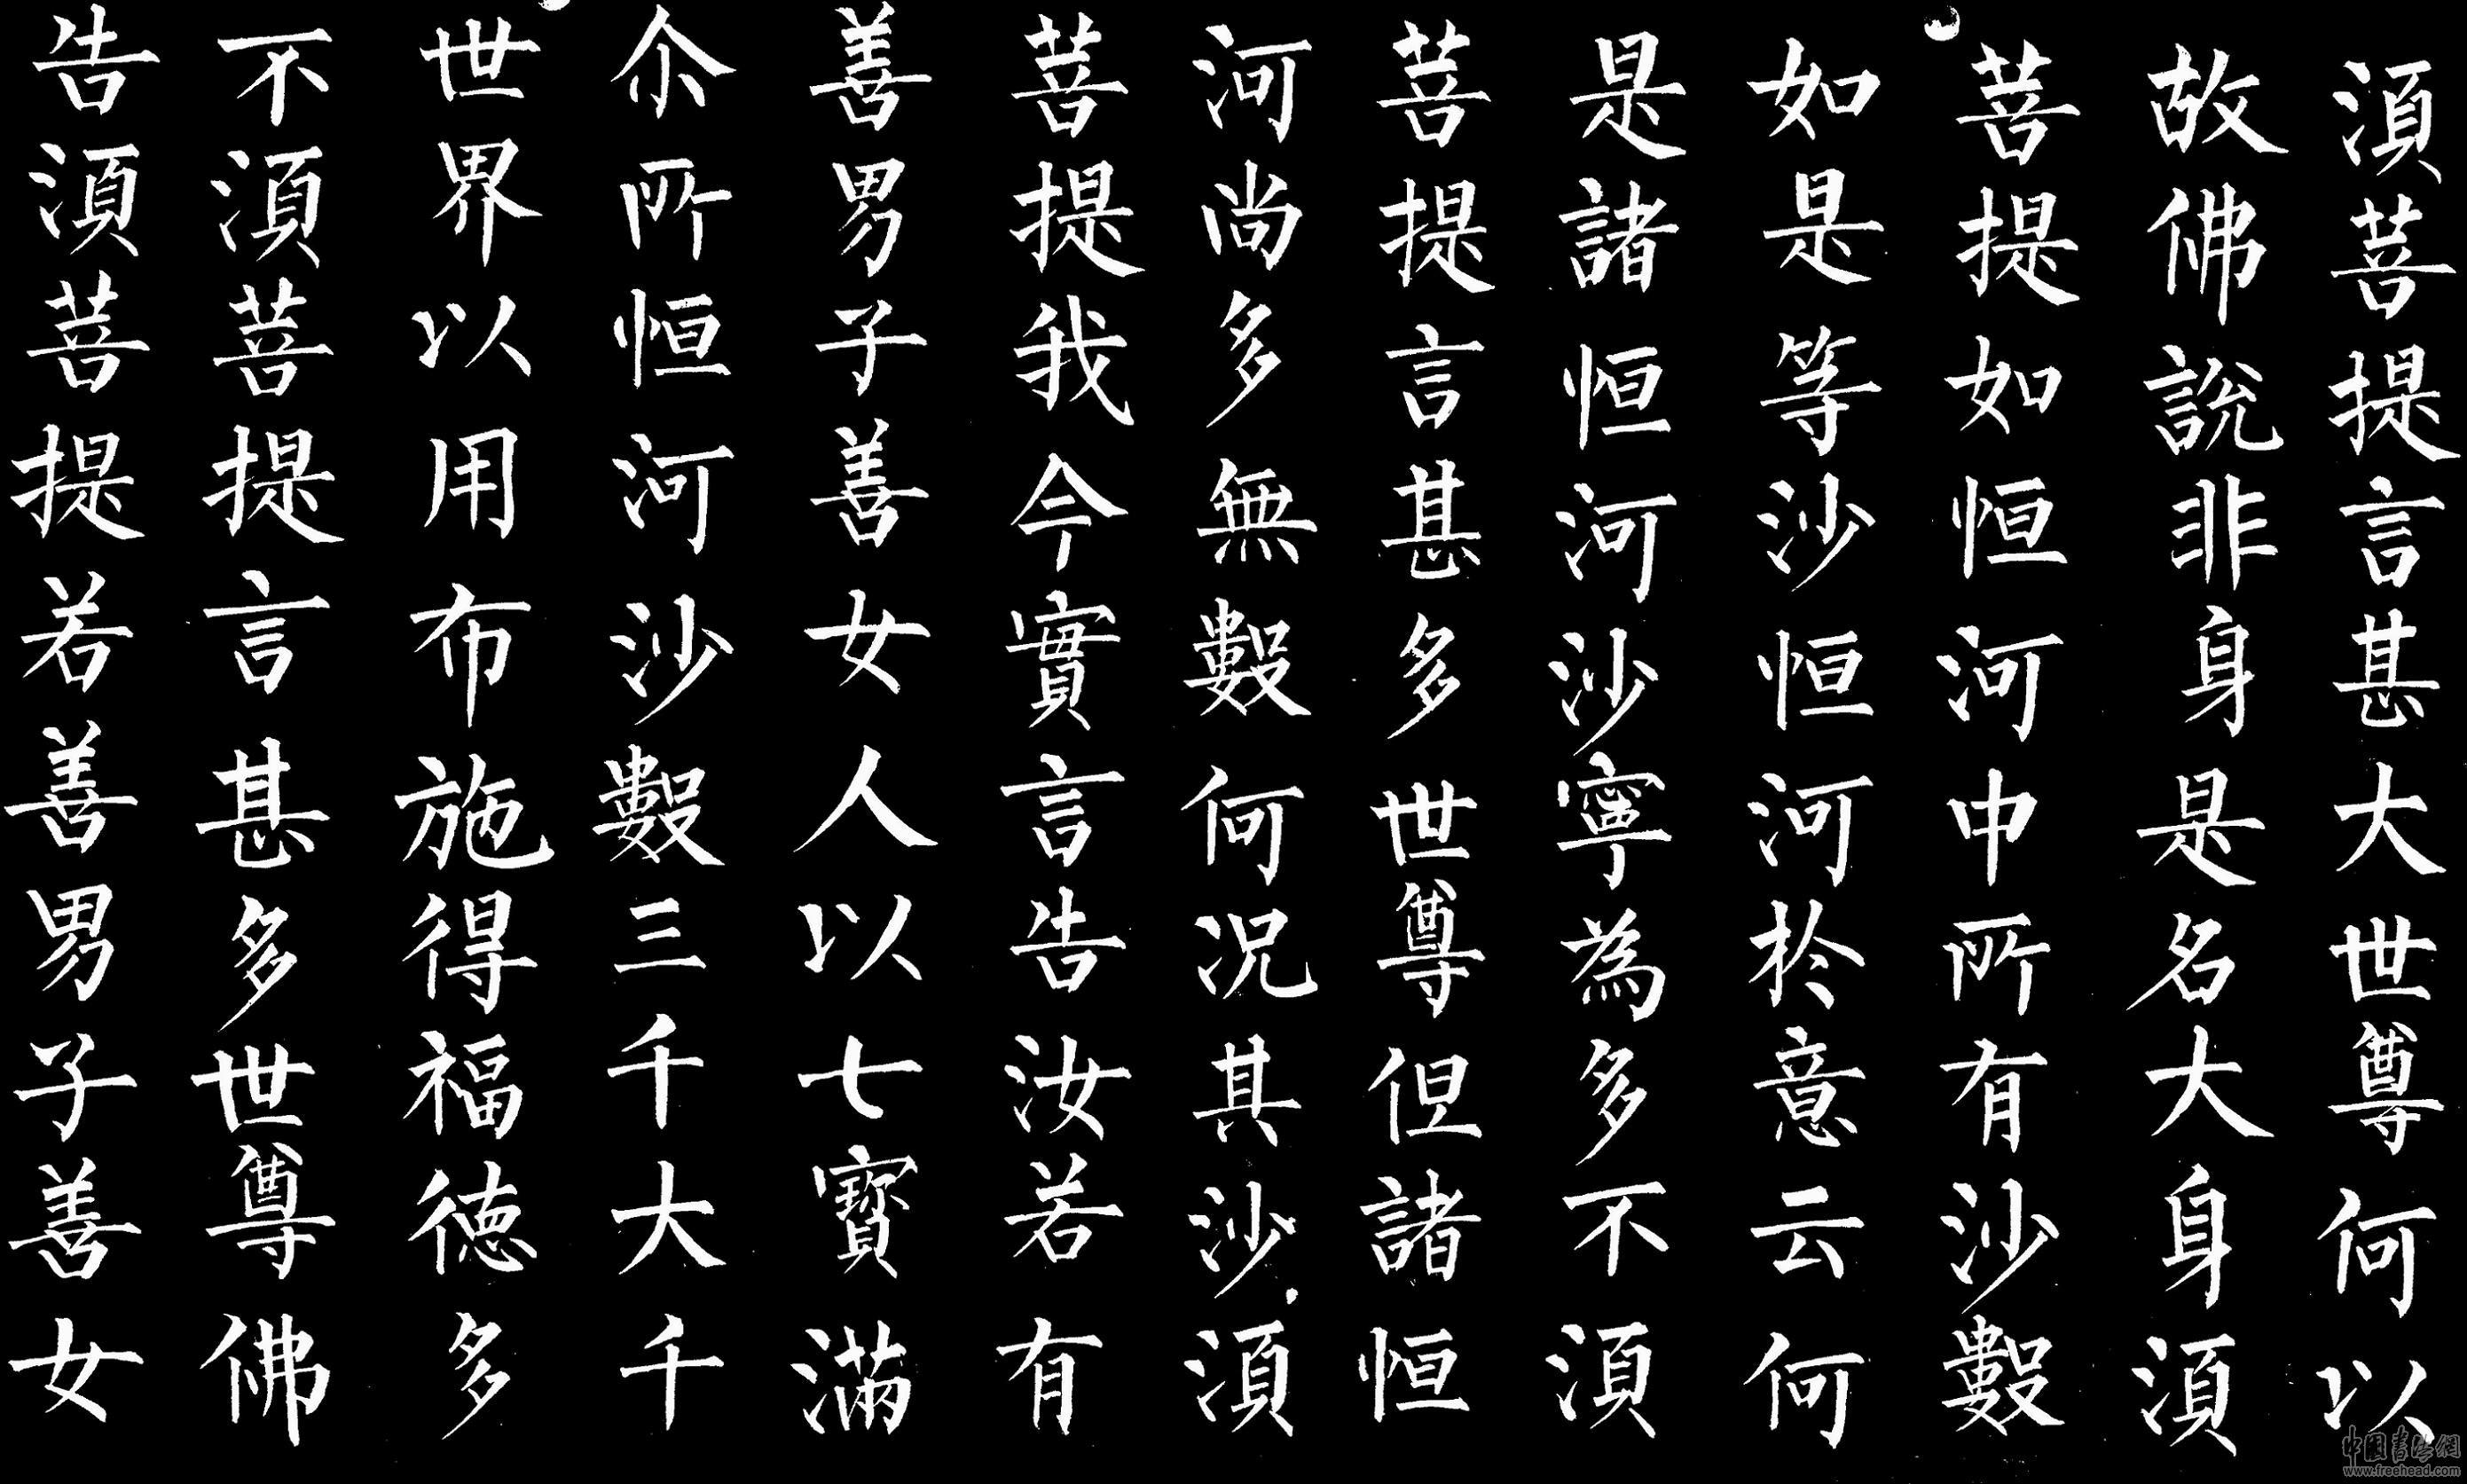 須菩提言甚大世尊何以
故佛說非身是名大身須
菩提如恒河中所有沙數
如是等沙恒河於意云何
是諸恒河沙寧為多不須
菩提言甚多世尊但諸恒
河尚多無數何況其沙須
菩提我今實言告汝若有
善男子善女人以七寶滿
尒所恒河沙數三千大千
世界以用布施得福德多
不須菩提言甚多世尊佛
告須菩提若善男子善女
中国書法網
www.freehead.com